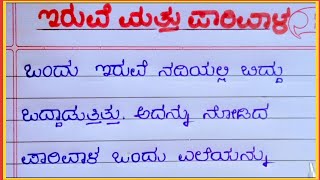 ಇರುವೆ ಮತ್ತು ಪಾರಿವಾಳ
ಒಂದು ಇರುವೆ ನದಿಯಲ್ಲಿ ಬಿದ್ದು
ಒದ್ದಾಡುತ್ತಿತ್ತು. ಅದನ್ನು ನೋಡಿದ
ಪಾರಿವಾಳ ಒಂದು ಎಲೆಯನ್ನು